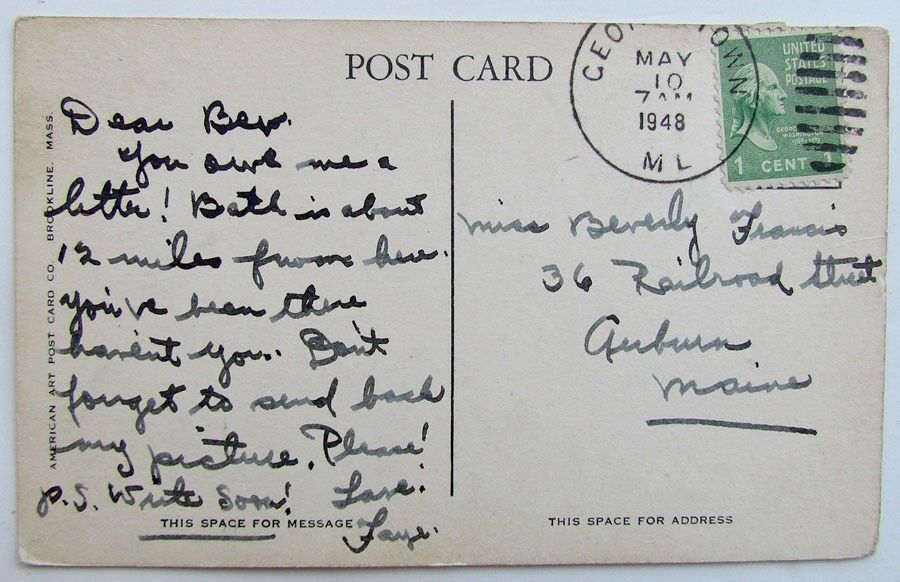 POST CARD
GEORGETOWN
MAY
10
7 AM
1948
ME
UNITED
STATES
POSTAGE
GEORGE
WASHINGTON
1 CENT 1
AMERICAN ART POST CARD CO. BROOKLINE, MASS.
Dear Bev.
You owe me a
letter! Bath is about
12 miles from here.
You've been there
haven't you. Don't
forget to send back
my picture. Please!
P.S. Write Soon! Love.
Faye.
THIS SPACE FOR MESSAGE
Miss Beverly Francis
36 Railroad Street
Auburn
Maine
THIS SPACE FOR ADDRESS